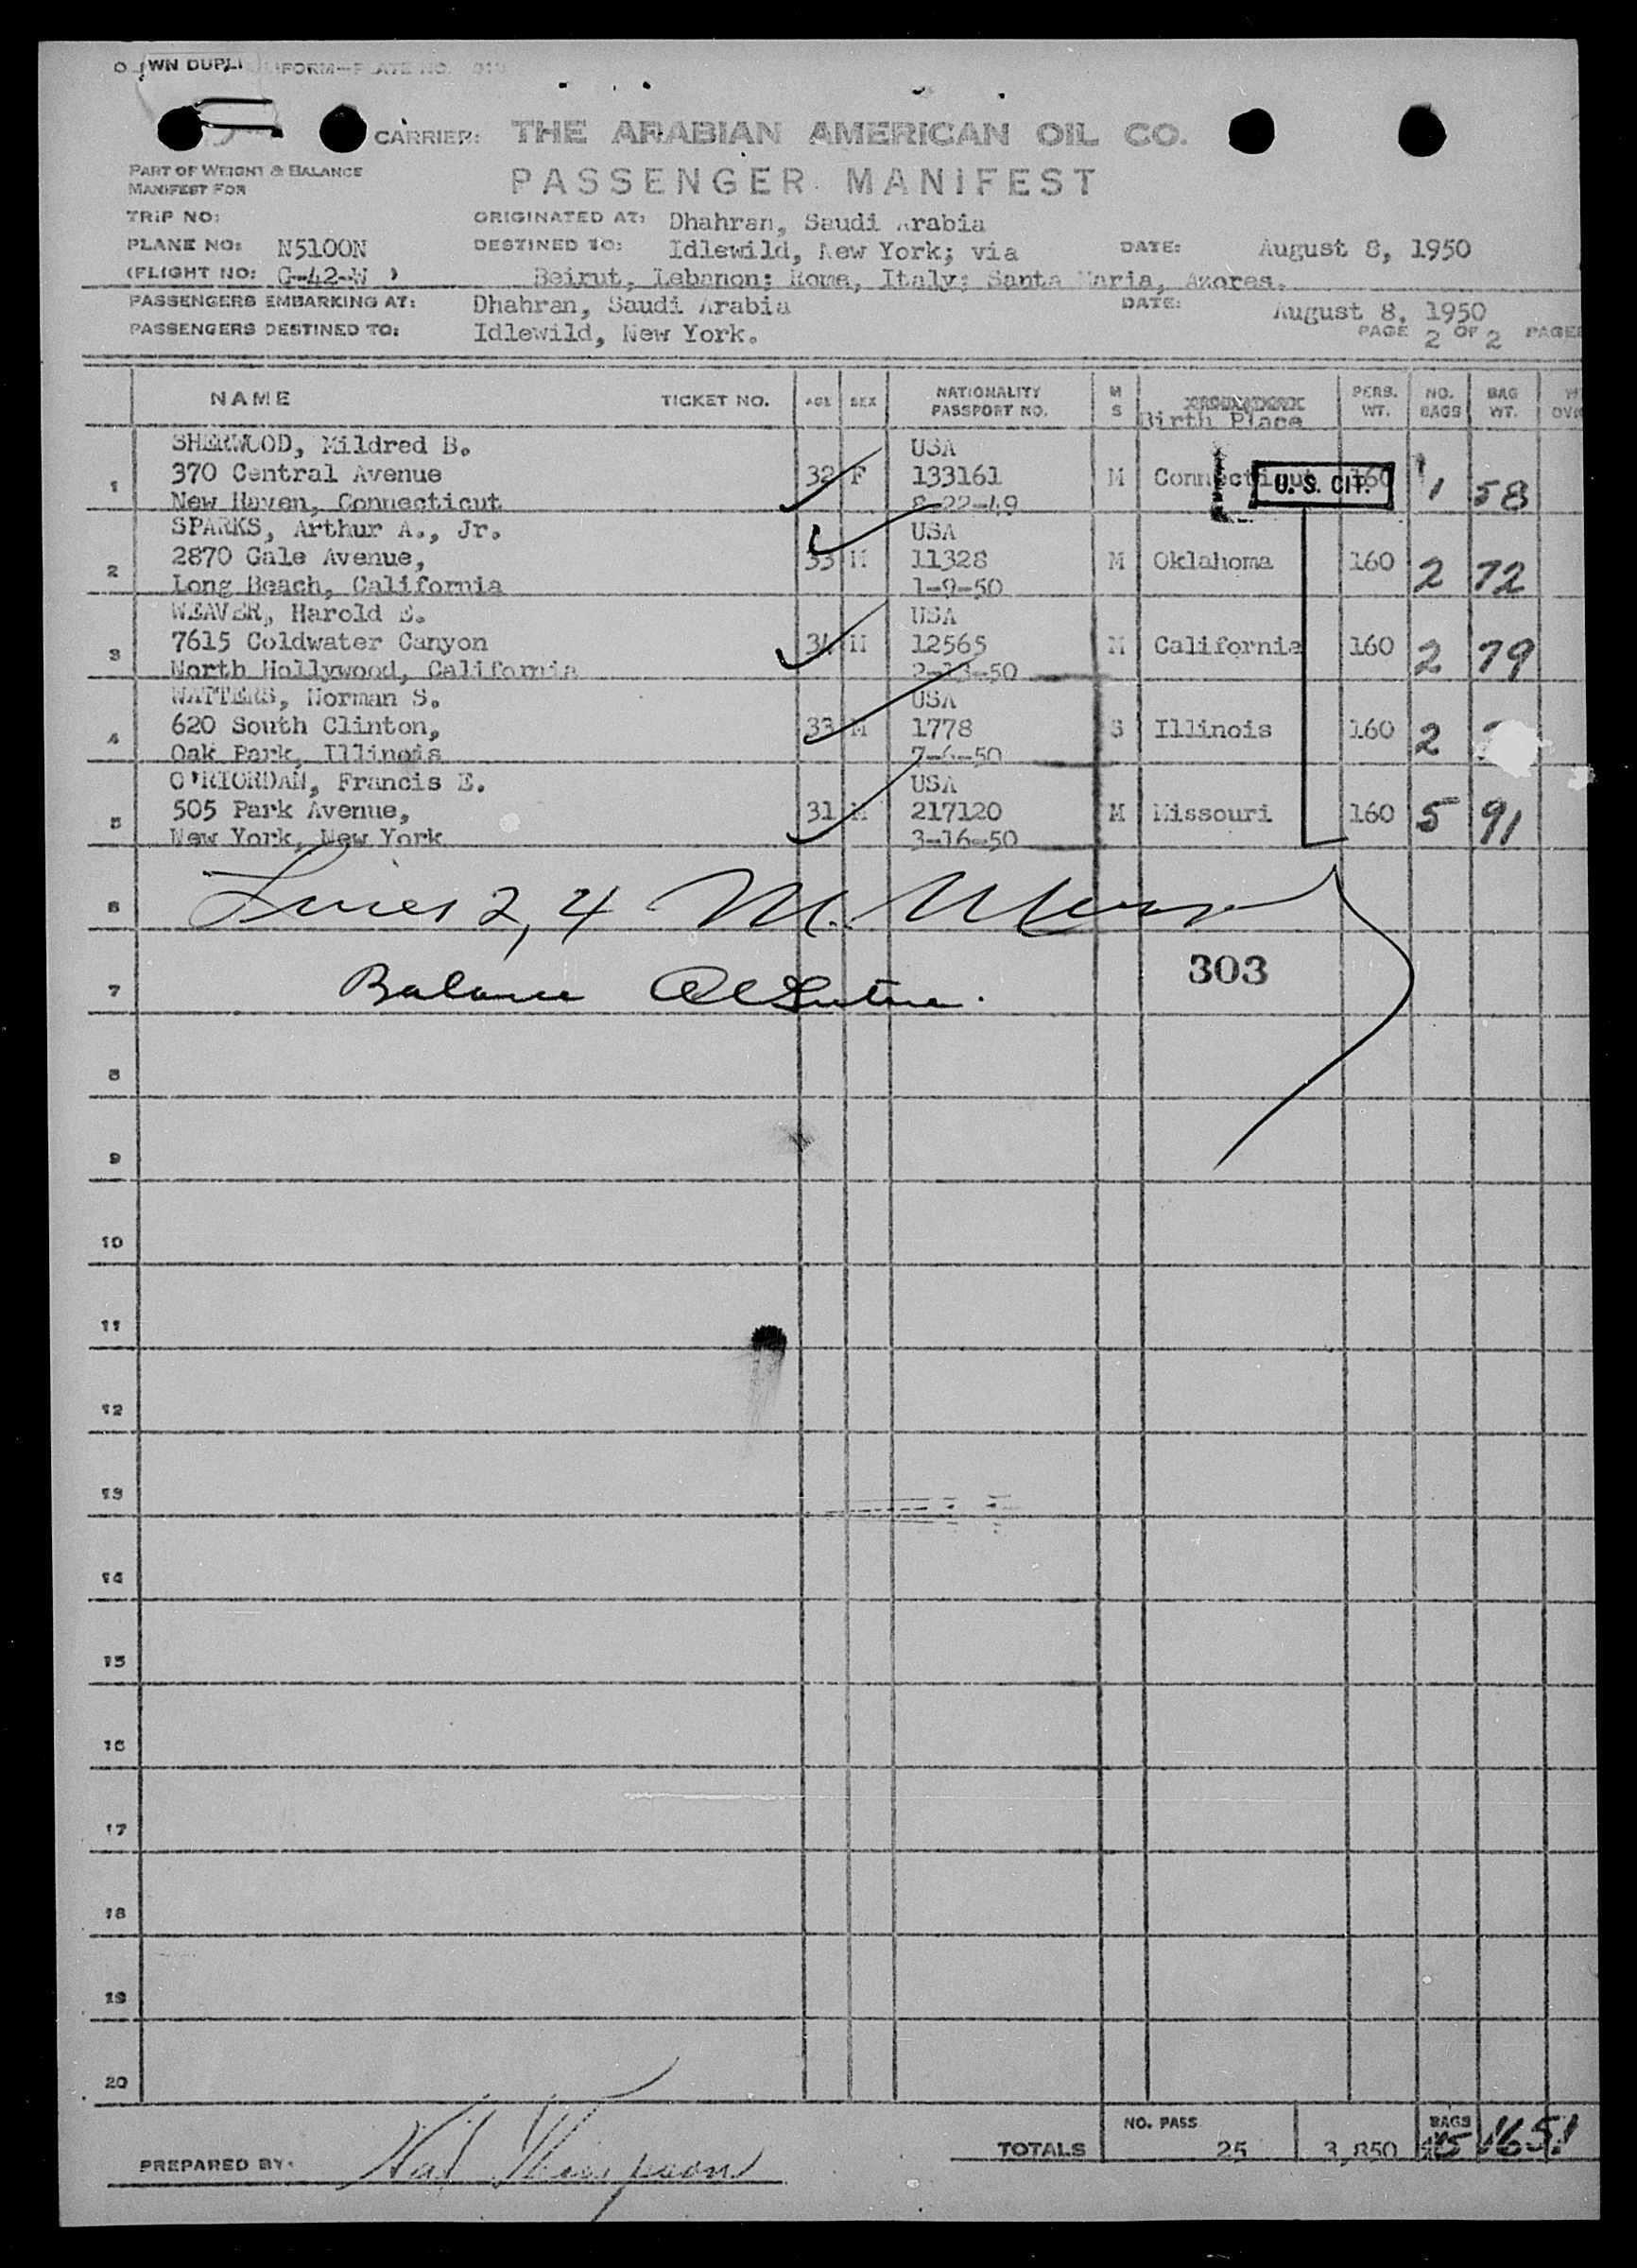 WN DUPLI
CARRIER: THE ARABIAN AMERICAN OIL CO.
PART OF WEIGHT & BALANCE
MANIFEST FOR
PASSENGER MANIFEST
TRIP NO:
ORIGINATED AT: Dhahran, Saudi Arabia
PLANE NO: N5100N
DESTINED TO: Idlewild, New York; via
DATE: August 8, 1950
(FLIGHT NO: G-42-W )
Beirut, Lebanon; Rome, Italy; Santa Maria, Azores.
PASSENGERS EMBARKING AT: Dhahran, Saudi Arabia
DATE: August 8, 1950
PASSENGERS DESTINED TO: Idlewild, New York.
PAGE 2 OF 2 PAGE
NAME TICKET NO. AGE SEX NATIONALITY PASSPORT NO. M S Birth Place PERS. WT. NO. BAGS BAG WT.
SHERWOOD, Mildred B. USA
1 370 Central Avenue 32 F 133161 M Connecticut 160 1 58
U. S. CIT.
New Haven, Connecticut 8-22-49
SPARKS, Arthur A., Jr. USA
2 2870 Gale Avenue, 33 M 11328 M Oklahoma 160 2 72
Long Beach, California 1-9-50
WEAVER, Harold E. USA
3 7615 Coldwater Canyon 34 M 12565 M California 160 2 79
North Hollywood, California 2-13-50
WATTERS, Norman S. USA
4 620 South Clinton, 33 M 1778 S Illinois 160 2
Oak Park, Illinois 7-6-50
O'RIORDAN, Francis E. USA
5 505 Park Avenue, 31 M 217120 M Missouri 160 5 91
New York, New York 3-16-50
6 Lines 2, 4 M.
7 Balance
303
8
9
10
11
12
13
14
15
16
17
18
19
20
PREPARED BY: Thompson
TOTALS NO. PASS 25 3,850 BAGS 1651